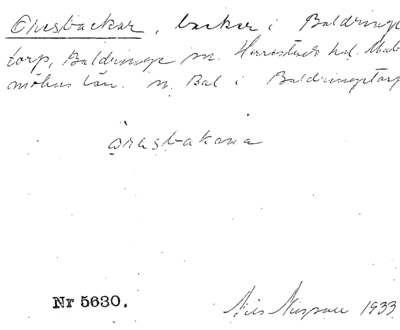 Orasbackar, backar i Baldringe
torp, Baldringe sn. Herrestads hd. Malm
möhus län. n. Bal i Baldringetorp
orasbakana
Nr 5630.
Nils 1933